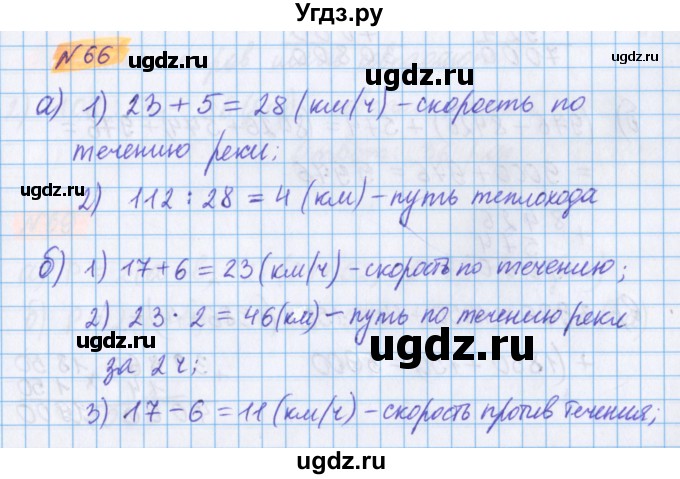 Угдз.ру
№66
ugdz.ru
ugdz.ru
а) 1) 23 + 5 = 28 (км/ч) – скорость по
течению реки;
ugdz.ru
ugdz.ru
ugdz.ru
2) 112 : 28 = 4 (км) – путь теплохода
ugdz.ru
б) 1) 17 + 6 = 23 (км/ч) – скорость по течению;
2) 23 · 2 = 46 (км) – путь по течению реки
ugdz.ru
ugdz.ru
за 2 ч;
ugdz.ru
3) 17 – 6 = 11 (км/ч) – скорость против течения;
ugdz.ru